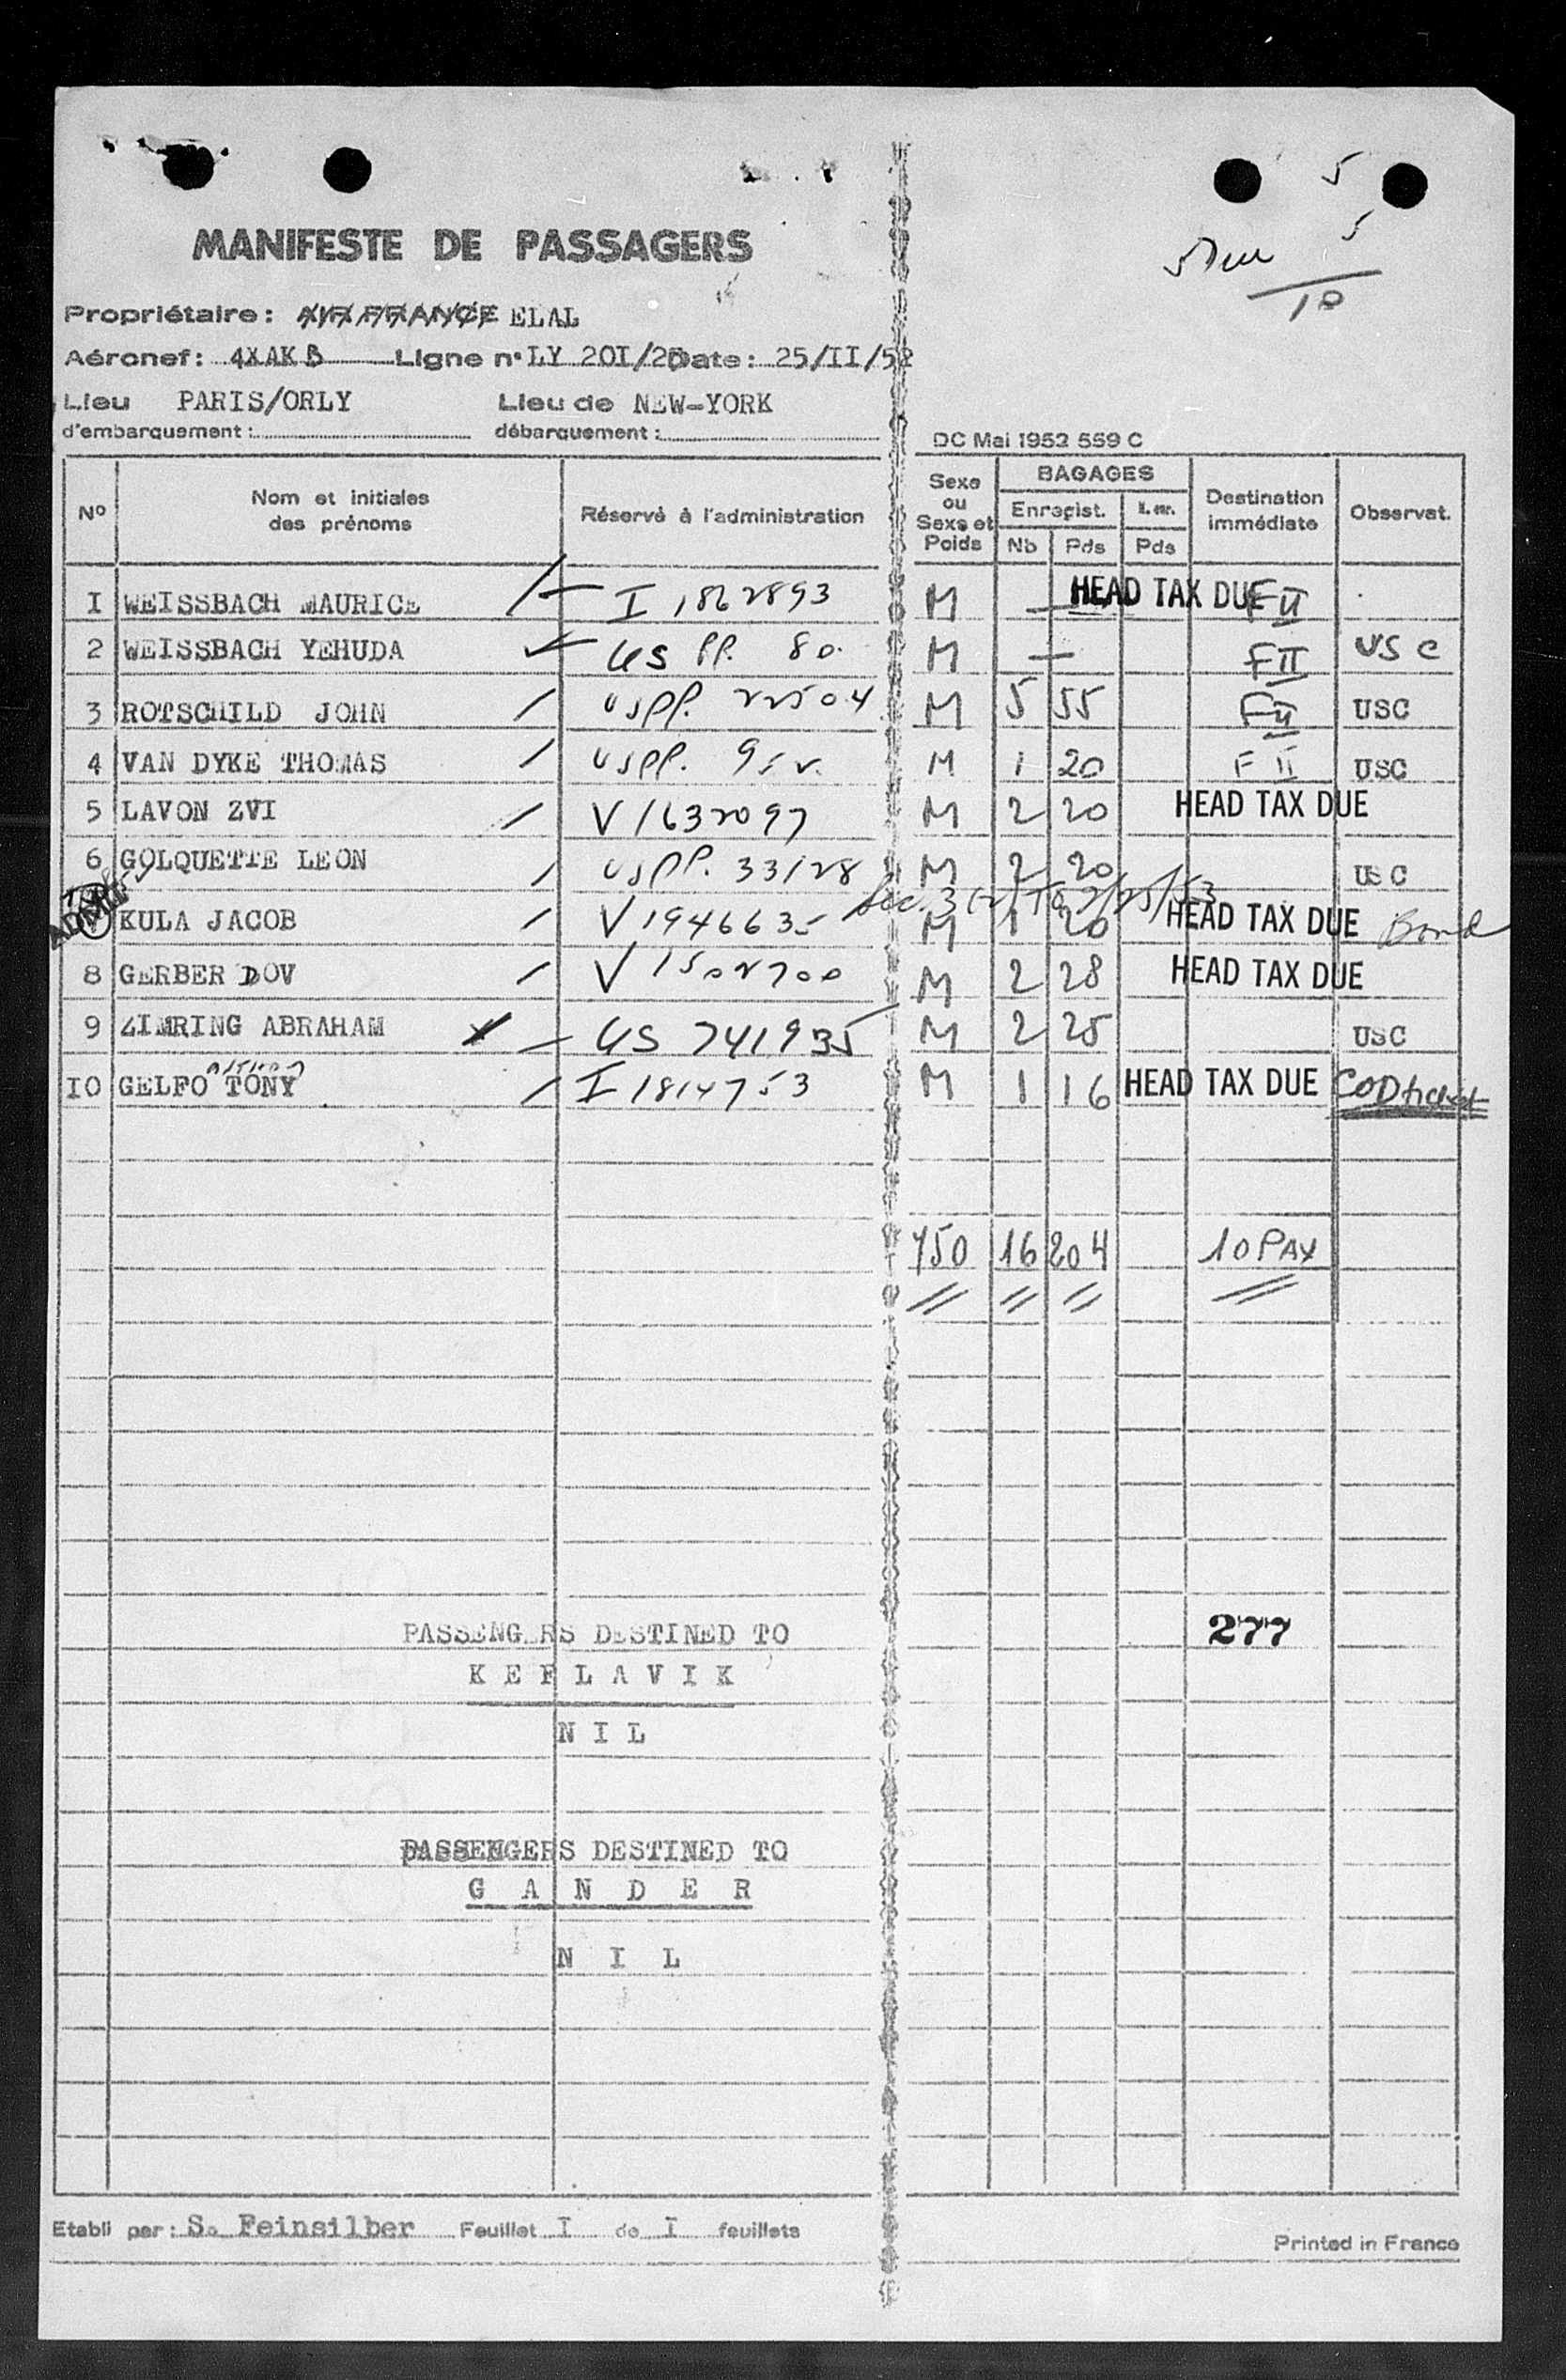 5
5
5
10
MANIFESTE DE PASSAGERS
Propriétaire: AIR FRANCE ELAL
Aéronef: 4XAKB Ligne n° LY 20I/25 Date: 25/II/52
Lieu d'embarquement: PARIS/ORLY Lieu de débarquement: NEW-YORK
DC Mai 1952 559 C
N° Nom et initiales des prénoms Réservé à l'administration Sexe ou Sexe et Poids BAGAGES Enregist. Nb Pds Pds Destination immédiate Observat.
I WEISSBACH MAURICE I 1862893 M — HEAD TAX DUE FII
2 WEISSBACH YEHUDA US PP. 80. M — FII USC
3 ROTSCHILD JOHN USPP. 22504 M 5 55 FII USC
4 VAN DYKE THOMAS USPP. M 1 20 FII USC
5 LAVON ZVI V 1632097 M 2 20 HEAD TAX DUE
6 GOLQUETTE LEON USPP. 33128 M 2 20 USC
KULA JACOB V 1946635 M 1 20 HEAD TAX DUE Bond
8 GERBER DOV V 1502700 M 2 28 HEAD TAX DUE
9 ZIMRING ABRAHAM US 741935 M 2 25 USC
IO GELFO TONY I 1814753 M 1 16 HEAD TAX DUE COD ticket
750 16 204 10 PAX
PASSENGERS DESTINED TO 277
K E F L A V I K
N I L
PASSENGERS DESTINED TO
G A N D E R
N I L
Etabli par: S. Feinsilber Feuillet I de I feuillets
Printed in France